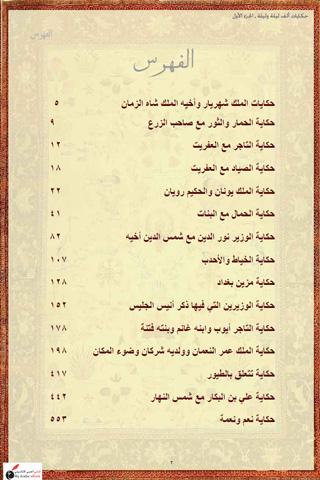 حكايات ألف ليلة وليلة ـ الجزء الأول
الفهرس
الفهرس
حكايات الملك شهريار وأخيه الملك شاه الزمان ٥
حكاية الحمار والثور مع صاحب الزرع ٩
حكاية التاجر مع العفريت ١٢
حكاية الصياد مع العفريت ١٨
حكاية الملك يونان والحكيم رويان ٢٢
حكاية الحمال مع البنات ٤١
حكاية الوزير نور الدين مع شمس الدين أخيه ٨٢
حكاية الخياط والأحدب ١٠٧
حكاية مزين بغداد ١٢٨
حكاية الوزيرين التي فيها ذكر أنيس الجليس ١٥٢
حكاية التاجر أيوب وابنه غانم وبنته فتنة ١٧٨
حكاية الملك عمر النعمان وولديه شركان وضوء المكان ١٩٨
حكاية تتعلق بالطيور ٤١٧
حكاية علي بن البكار مع شمس النهار ٤٤٢
حكاية نعم ونعمة ٥٥٣
٢